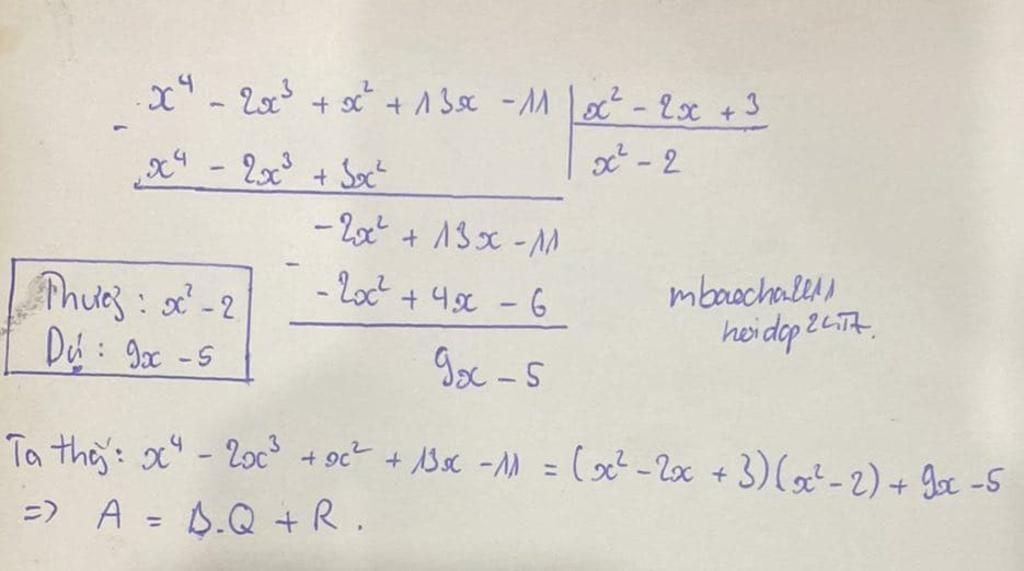 x⁴ - 2x³ + x² + 13x - 11 | x² - 2x + 3
-
x⁴ - 2x³ + 3x² | x² - 2
-2x² + 13x - 11
-
-2x² + 4x - 6
9x - 5
Thương : x² - 2
Dư : 9x - 5
hoidap247
Ta thấy : x⁴ - 2x³ + x² + 13x - 11 = (x² - 2x + 3)(x² - 2) + 9x - 5
=> A = B.Q + R .